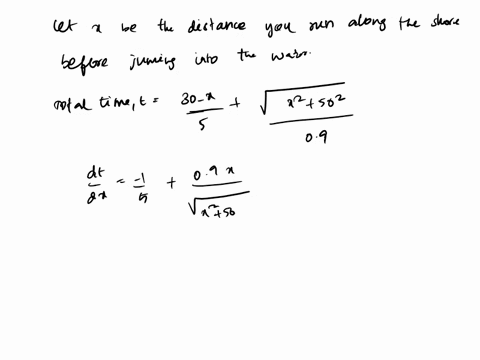 let x be the distance you run along the shore
before juming into the
total time, t = (30-x)/5 + √(x²+50²)/0.9
dt/dx = -1/5 + 0.9 x/√(x²+50